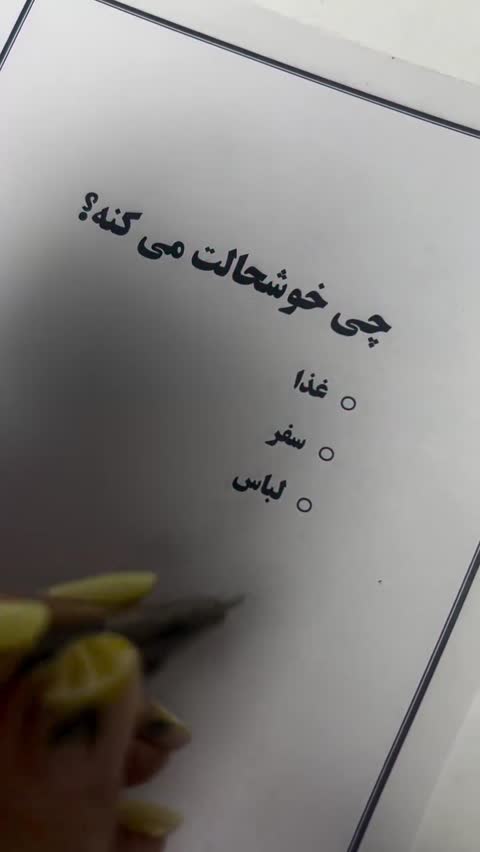 چی خوشحالت می کنه؟
غذا
سفر
لباس